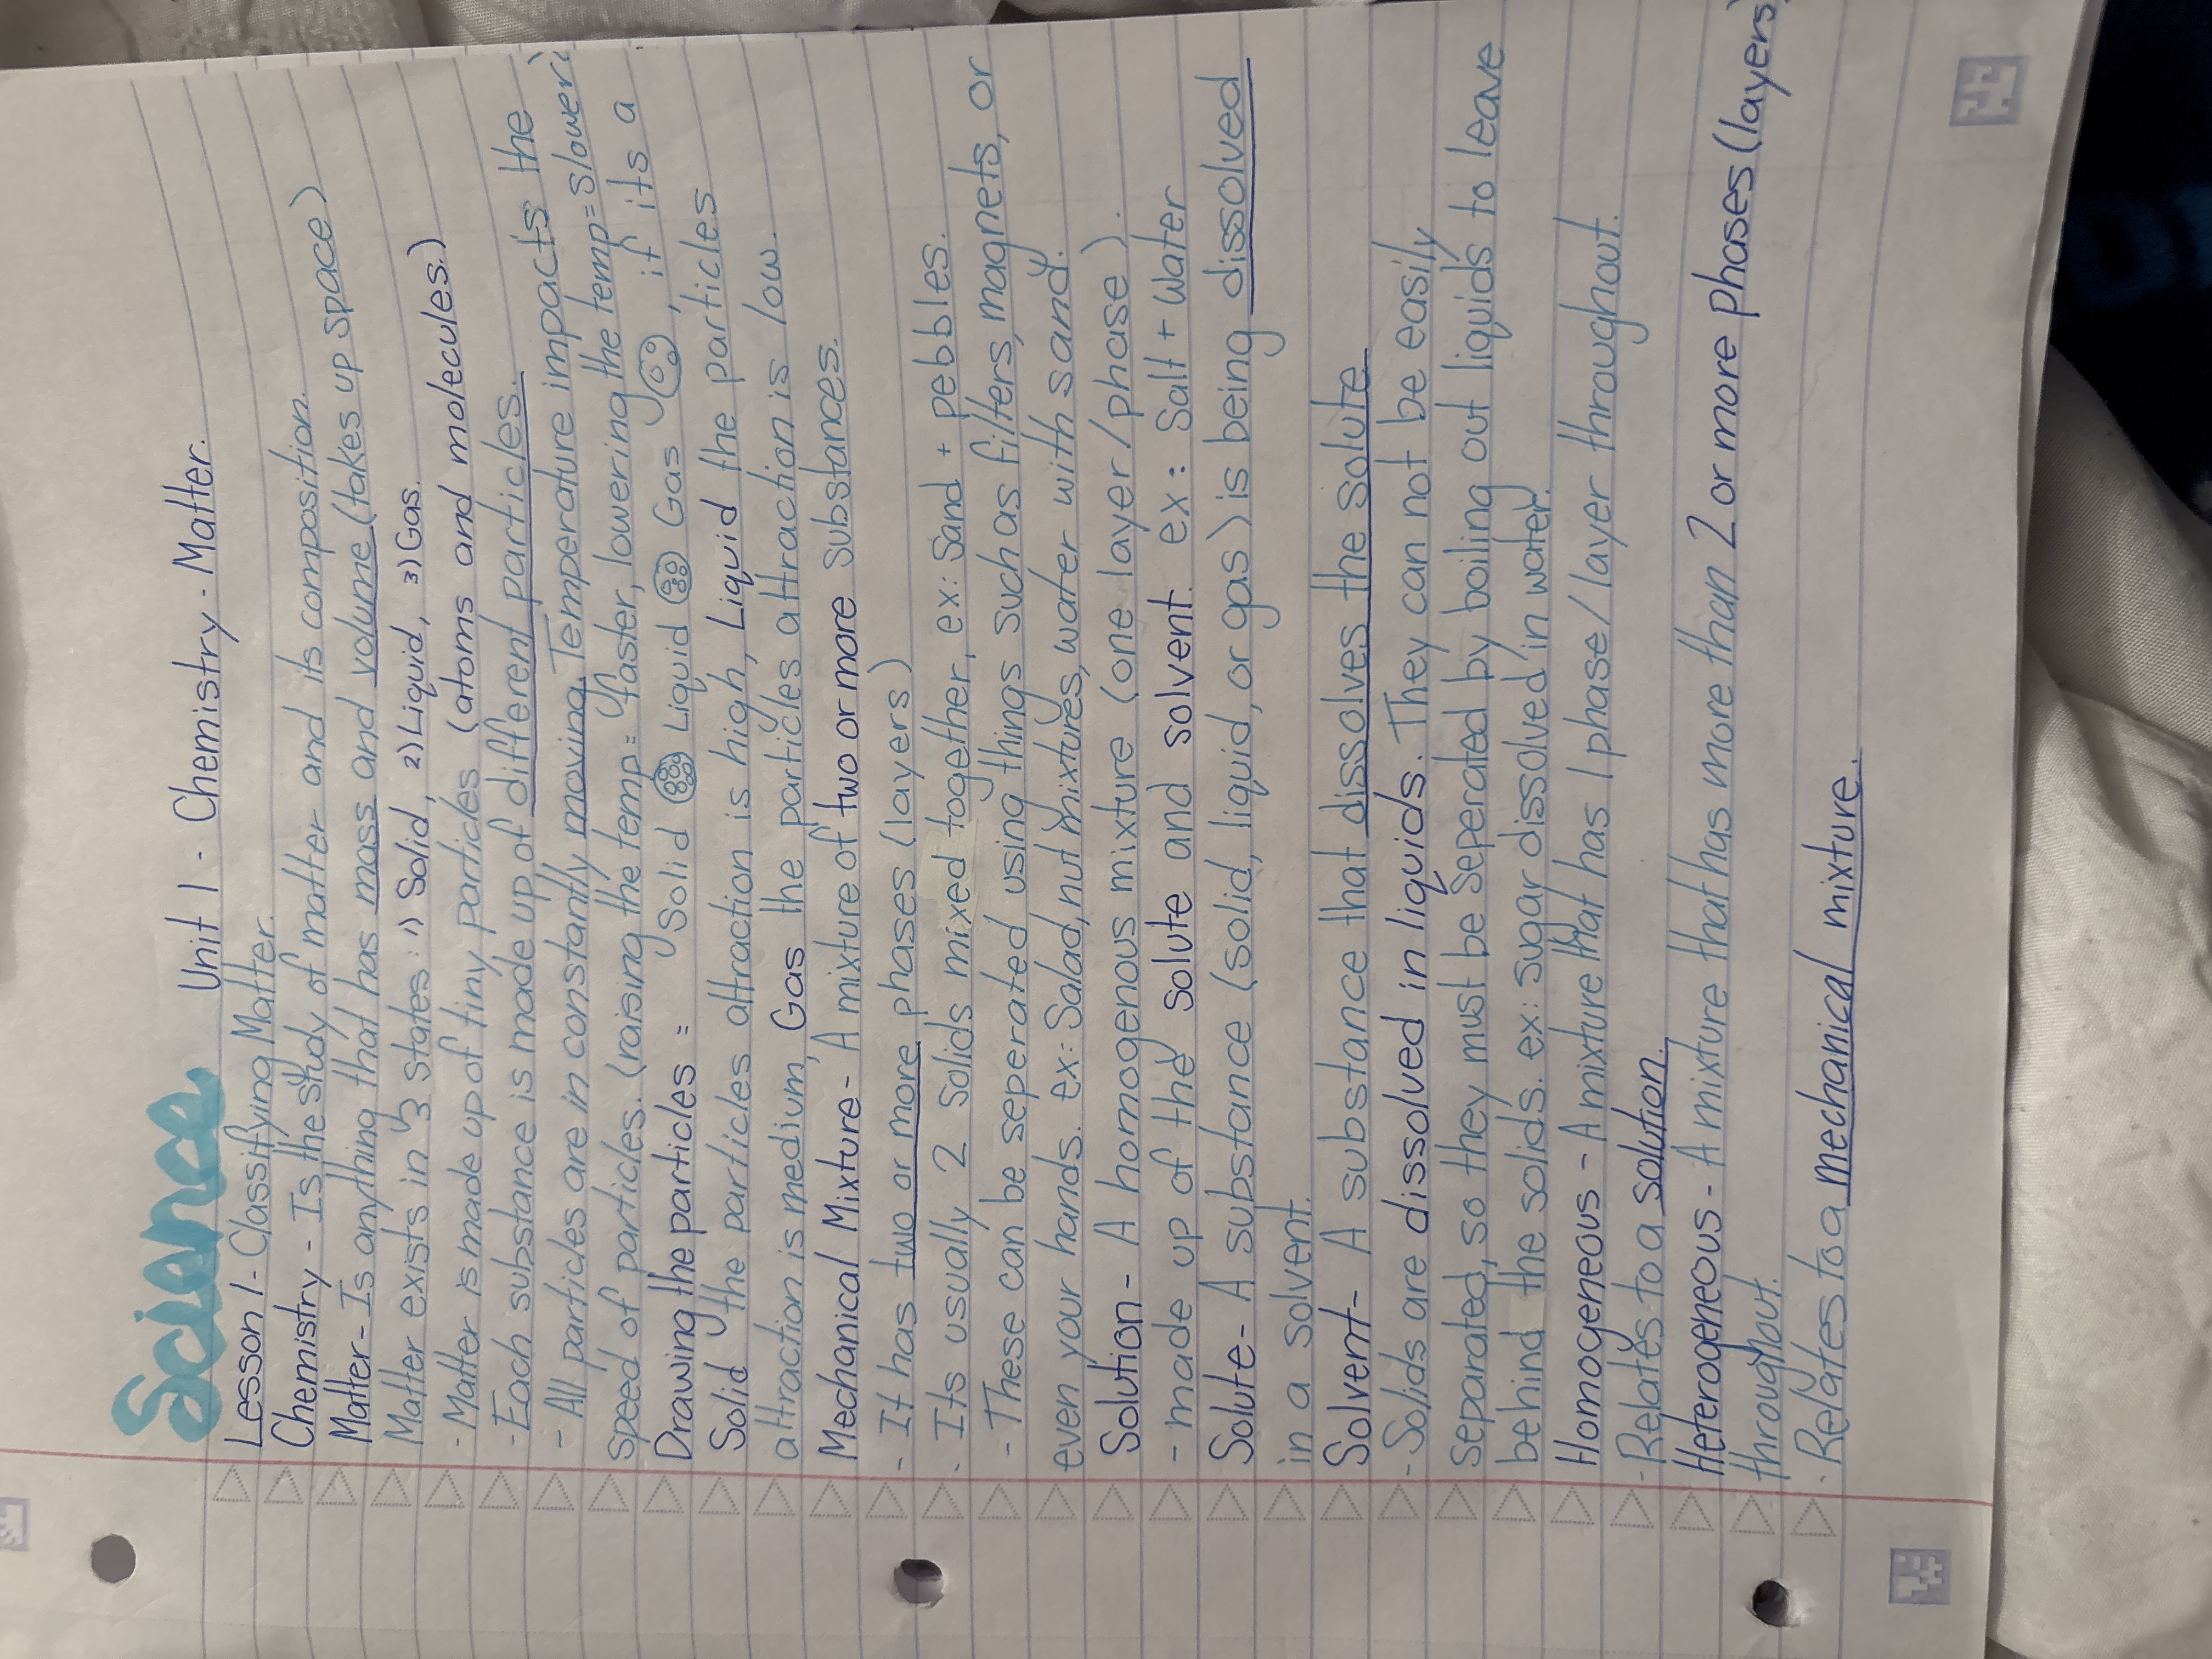 Science
Unit 1 - Chemistry - Matter.
Lesson 1 - Classifying Matter.
Chemistry - Is the study of matter and its composition.
Matter - Is anything that has mass and volume (takes up space)
Matter exists in 3 states: 1) Solid, 2) Liquid, 3) Gas.
- Matter is made up of tiny particles (atoms and molecules.)
- Each substance is made up of different particles.
- All particles are in constantly moving. Temperature impacts the
speed of particles. (raising the temp = faster, lowering the temp = slower)
Drawing the particles = Solid Liquid Gas , if its a
Solid the particles attraction is high, Liquid the particles
attraction is medium, Gas the particles attraction is low.
Mechanical Mixture - A mixture of two or more substances.
- It has two or more phases (layers)
- Its usually 2 solids mixed together, ex: Sand + pebbles.
- These can be seperated using things such as filters, magnets, or
even your hands. ex: Salad, nut mixtures, water with sand.
Solution - A homogenous mixture (one layer/phase).
- made up of the solute and solvent. ex: Salt + water
Solute - A substance (solid, liquid, or gas) is being dissolved
in a solvent.
Solvent - A substance that dissolves the solute
- Solids are dissolved in liquids. They can not be easily
separated, so they must be seperated by boiling out liquids to leave
behind the solids. ex: sugar dissolved in water.
Homogeneous - A mixture that has 1 phase/layer throughout.
- Relates to a solution.
Heterogeneous - A mixture that has more than 2 or more phases (layers)
throughout.
- Relates to a mechanical mixture.